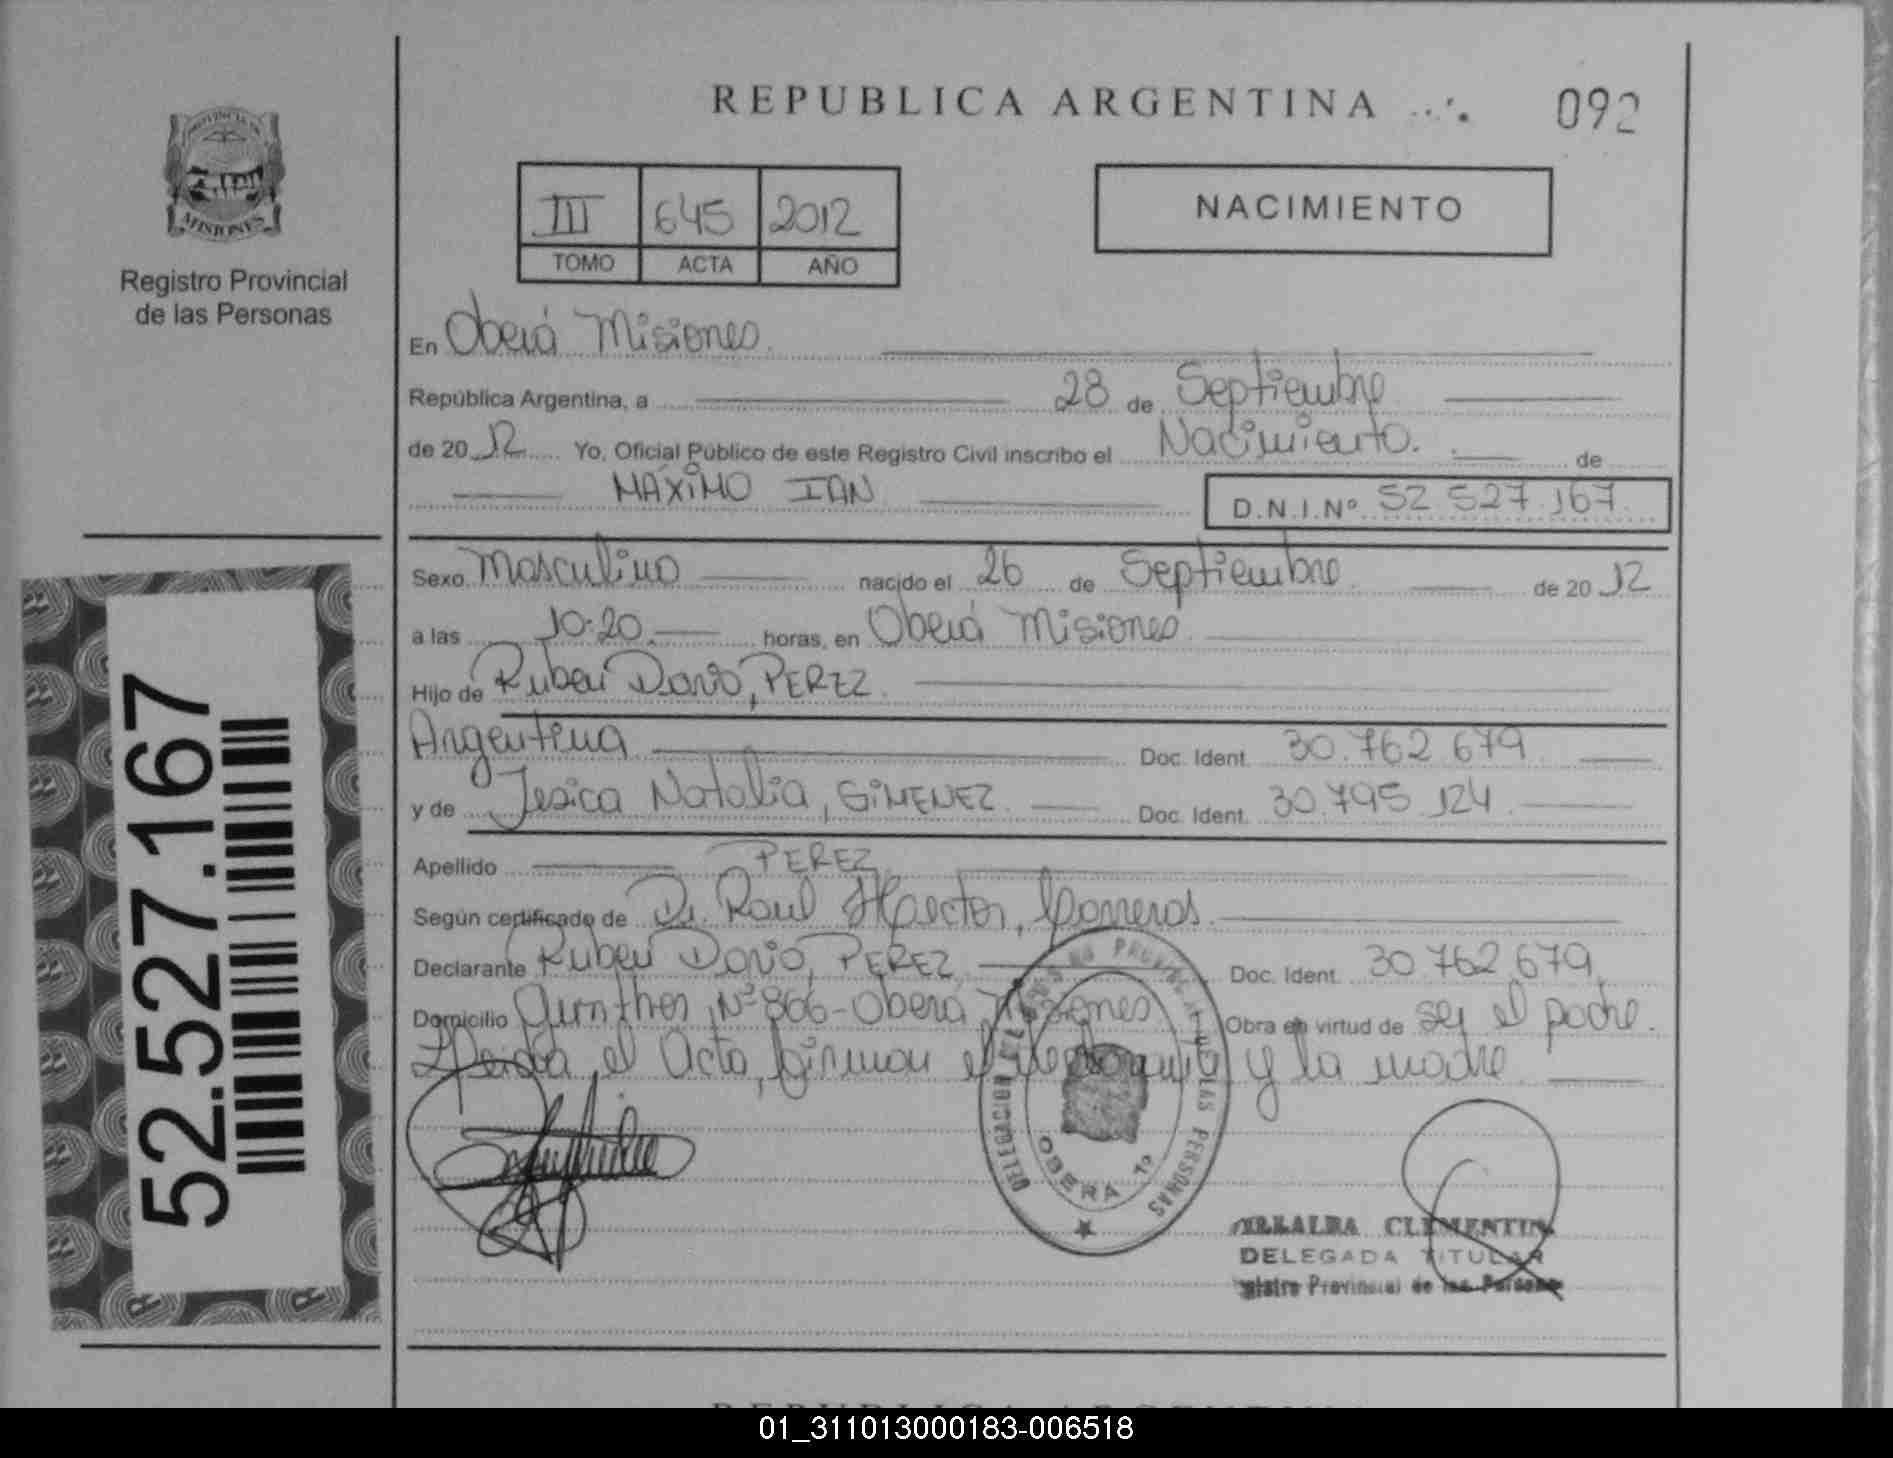 REPUBLICA ARGENTINA
092
PROVINCIA DE
MISIONES
Registro Provincial
de las Personas
III 645 2012
TOMO ACTA AÑO
NACIMIENTO
En Oberá Misiones.
República Argentina, a 28 de Septiembre
de 2012 Yo, Oficial Público de este Registro Civil inscribo el Nacimiento. de
MÁXIMO IAN
D.N.I.Nº 52 527.167.
Sexo Masculino nacido el 26 de Septiembre de 2012
a las 10:20 horas, en Oberá Misiones.
Hijo de Ruben Dario, PEREZ.
Argentina Doc. Ident. 30.762.679
y de Jesica Natalia, GIMENEZ. Doc. Ident. 30.795.124
Apellido PEREZ
Según certificado de Dr. Raul Hector,
Declarante Ruben Dario, PEREZ Doc. Ident. 30.762.679
Domicilio Nº 866-Oberá Misiones Obra en virtud de ser el padre.
Leída el Acta, firman el declarante y la madre.
52.527.167
DELEGACION
LAS PERSONAS
OBERA 1º
VILLALBA CLEMENTINA
DELEGADA TITULAR
Registro Provincial de las Personas
REPUBLICA ARGENTINA
01_311013000183-006518